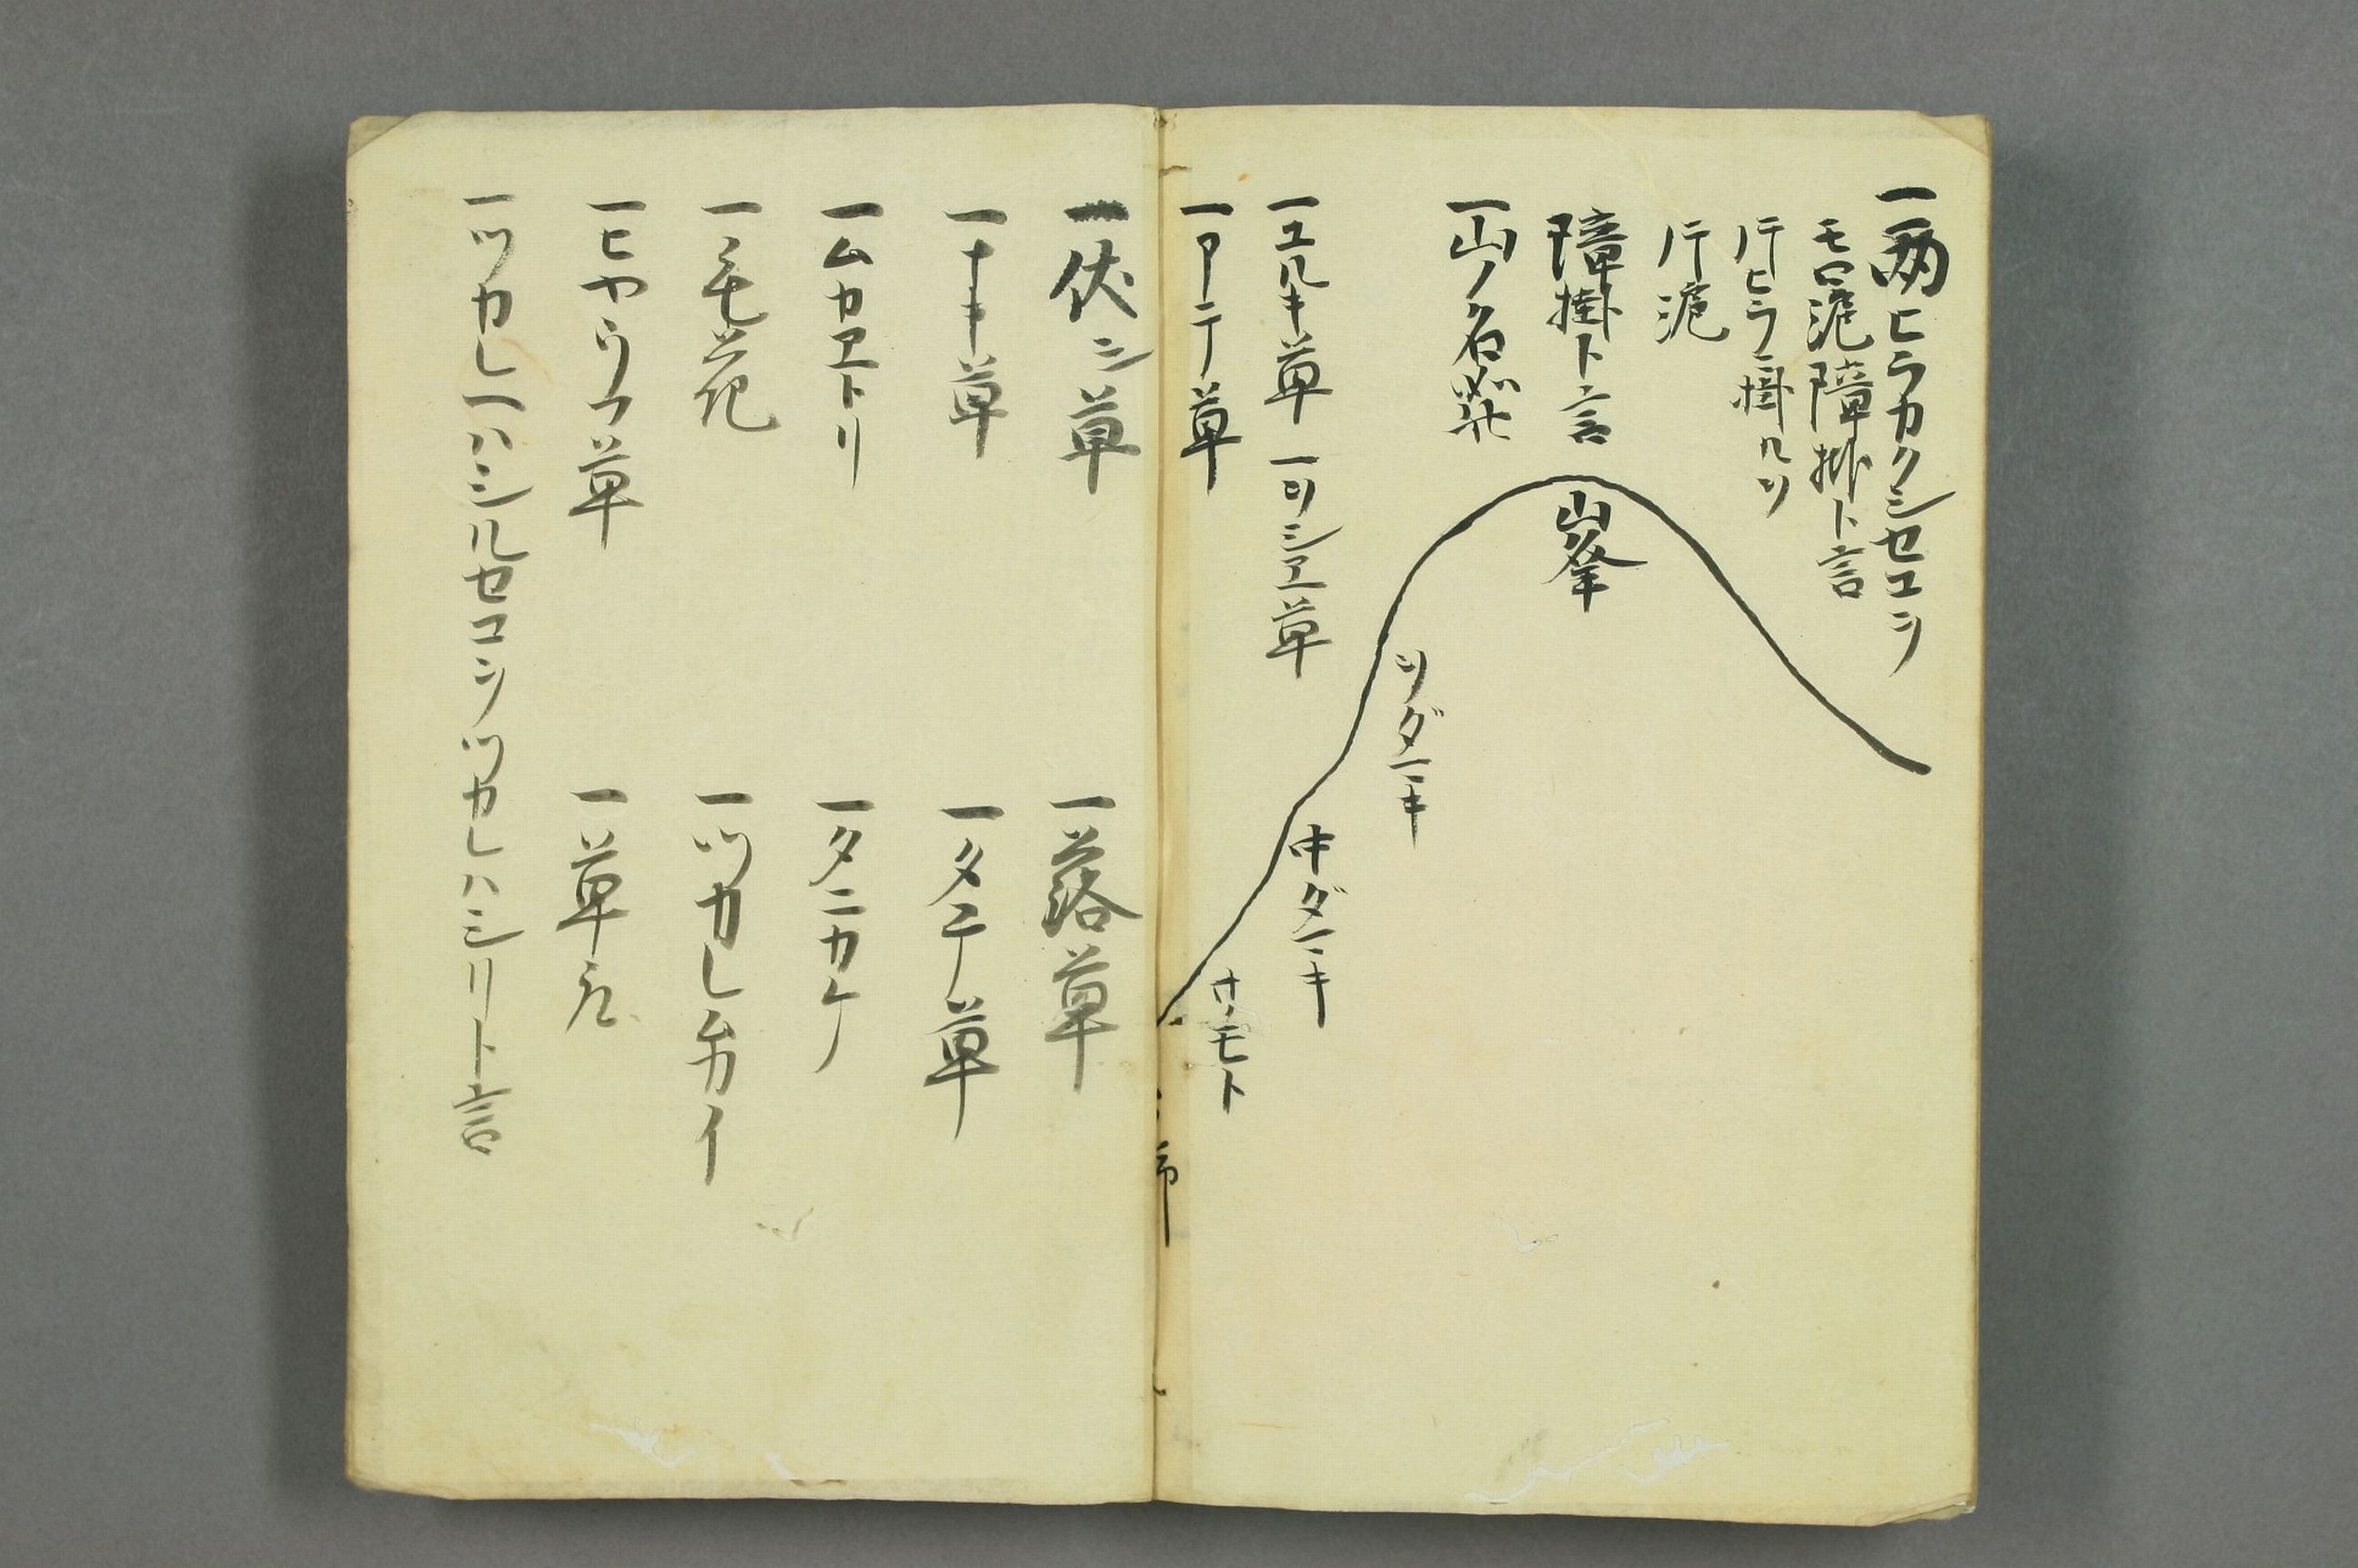 一両ヒラカクシセコヲ
モロ滝障掛ト言
片ヒラニ掛ルヲ
片滝
障掛ト言
一山ノ名所
山峯
ツダニキ
中ダニキ
サノモト
一エルキ草 一ツシヱ草
一アテ草
一伏シ草 一落草
一ナキ草 一タテ草
一ムカヱトリ 一タニカケ
一毛花 一ツカレムカイ
一ヒヤウフ草 一草
一ツカレ一ハシルセコヲツカレハシリト言